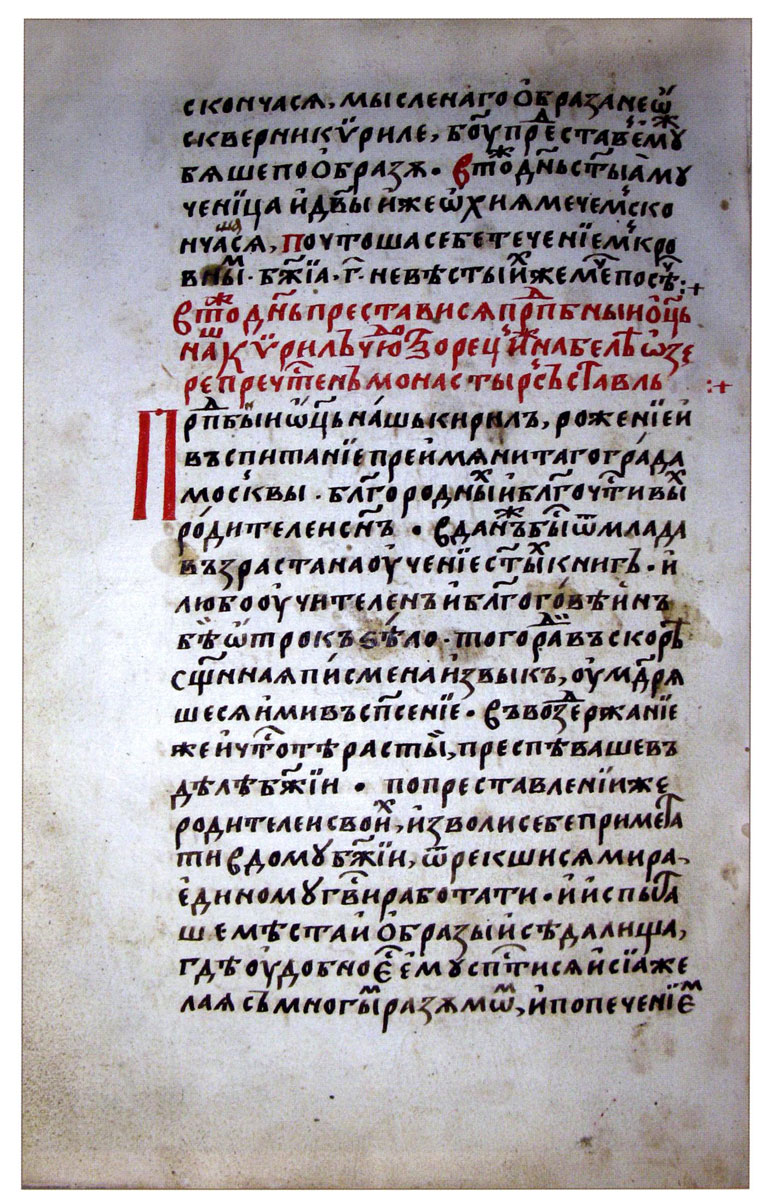 скончасѧ, мысленаго ѻбразанеѿ
скверникѵриле, бг҃ꙋпреⷣставьемꙋⷤ
бѧшепоѻбразѧ · втоⷤдн҃ьст҃ыѧмꙋ
ченїца идв҃ы ижеѡхиѧмечемъско
нчашаⷭѧ, почтошасебетеченїемъкро
внымⷨ · бж҃їа · г҃ · невѣстыиⷯжемⷭ҇епосѣⷱ :+
втоⷤдн҃ьпрестависѧпрⷣпбныиѻц҃ь
нашⷲ кѵрилъчюⷣотворець, ижⷤнабелѣѡзе
репречⷭ҇тенъмонастырьсъставль :+
Прⷣпбныиѡц҃ьнашькирилъ, роженїеи
въспитанїепреимѧнитагограда
москвы · блг҃ородныⷯиблг҃очⷭ҇тивыⷯ
родителеисн҃ъ · вданъⷤбы́ⷭѿмлада
възрастанаоученїест҃ыⷯкнигъ · и
любооучителенъиблг҃оговѣинъ
бѣѡтрокъѕѣло · тогораⷣивъскорѣ
сщ҃еннаѧписменаизвыкъ, оумꙋдрѧ
шесѧимивъсп҃сенїе · въвозⷣержанїе
жеичⷭ҇тотѣрастыи, преспѣвашевъ
дѣлѣбж҃їи · попреставленїиже
родителеисвоиⷯ, изволисебепримета
тивдомꙋбж҃їи, ѿрекшисѧмира
единомꙋгв҃иработати · ииспыта
шемѣстаиѻбразыисѣдалища,
гдѣоудобноеⷭ҇емꙋсп҃стисѧисїаже
лаѧсъмногыⷨразѧмѡⷨ, ипопеченїеⷨ